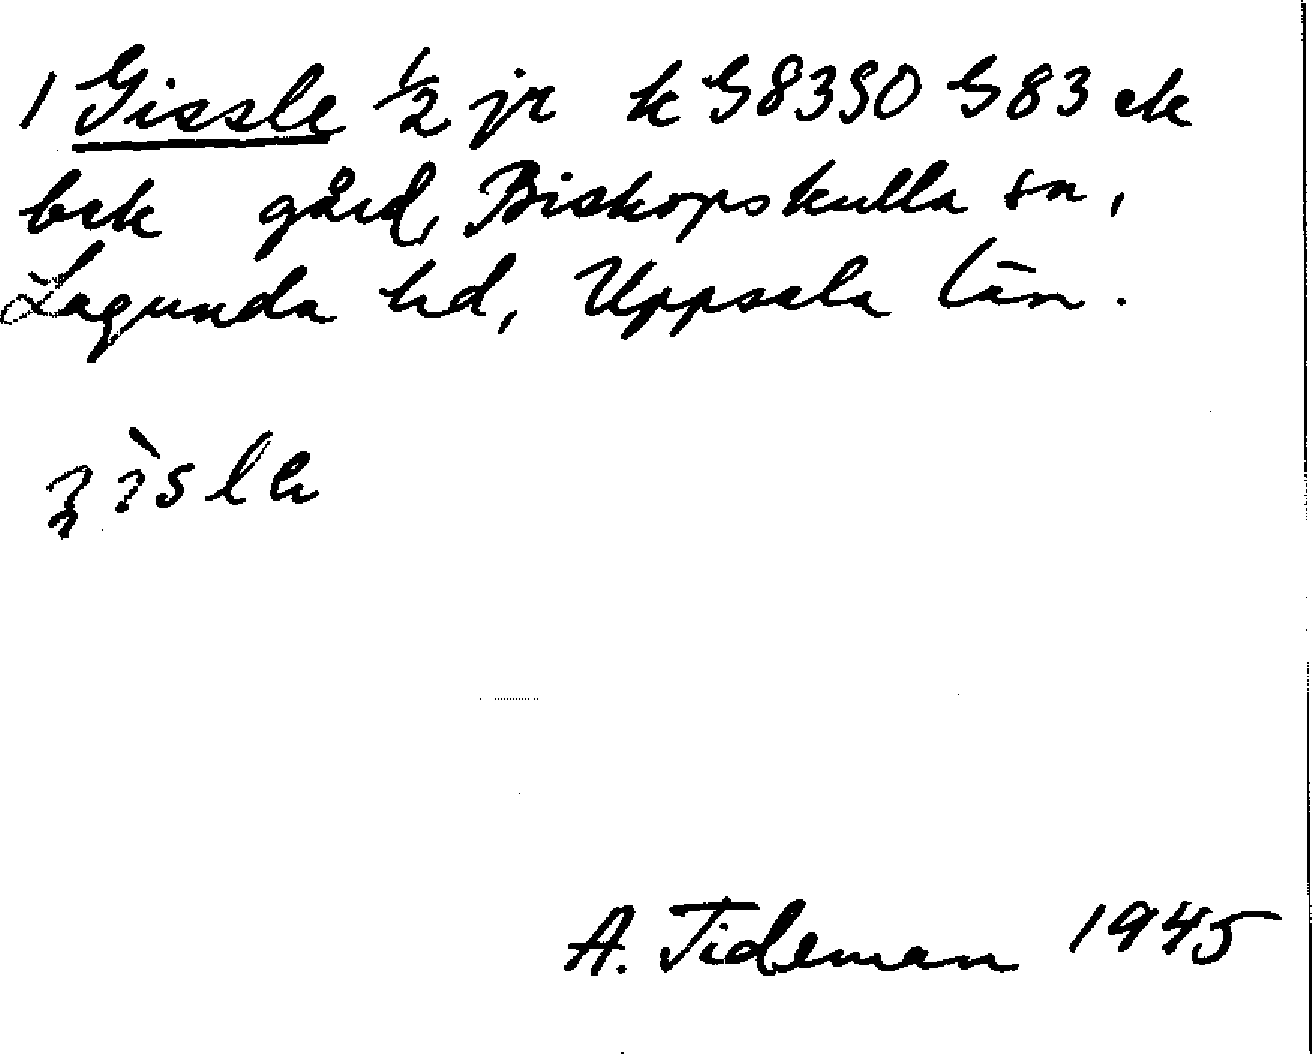 1 Gissle ½ jr k G8390 G83 ek
bek gård, Biskopskulla sn,
Lagunda hd, Uppsala län.
A. Tideman 1945